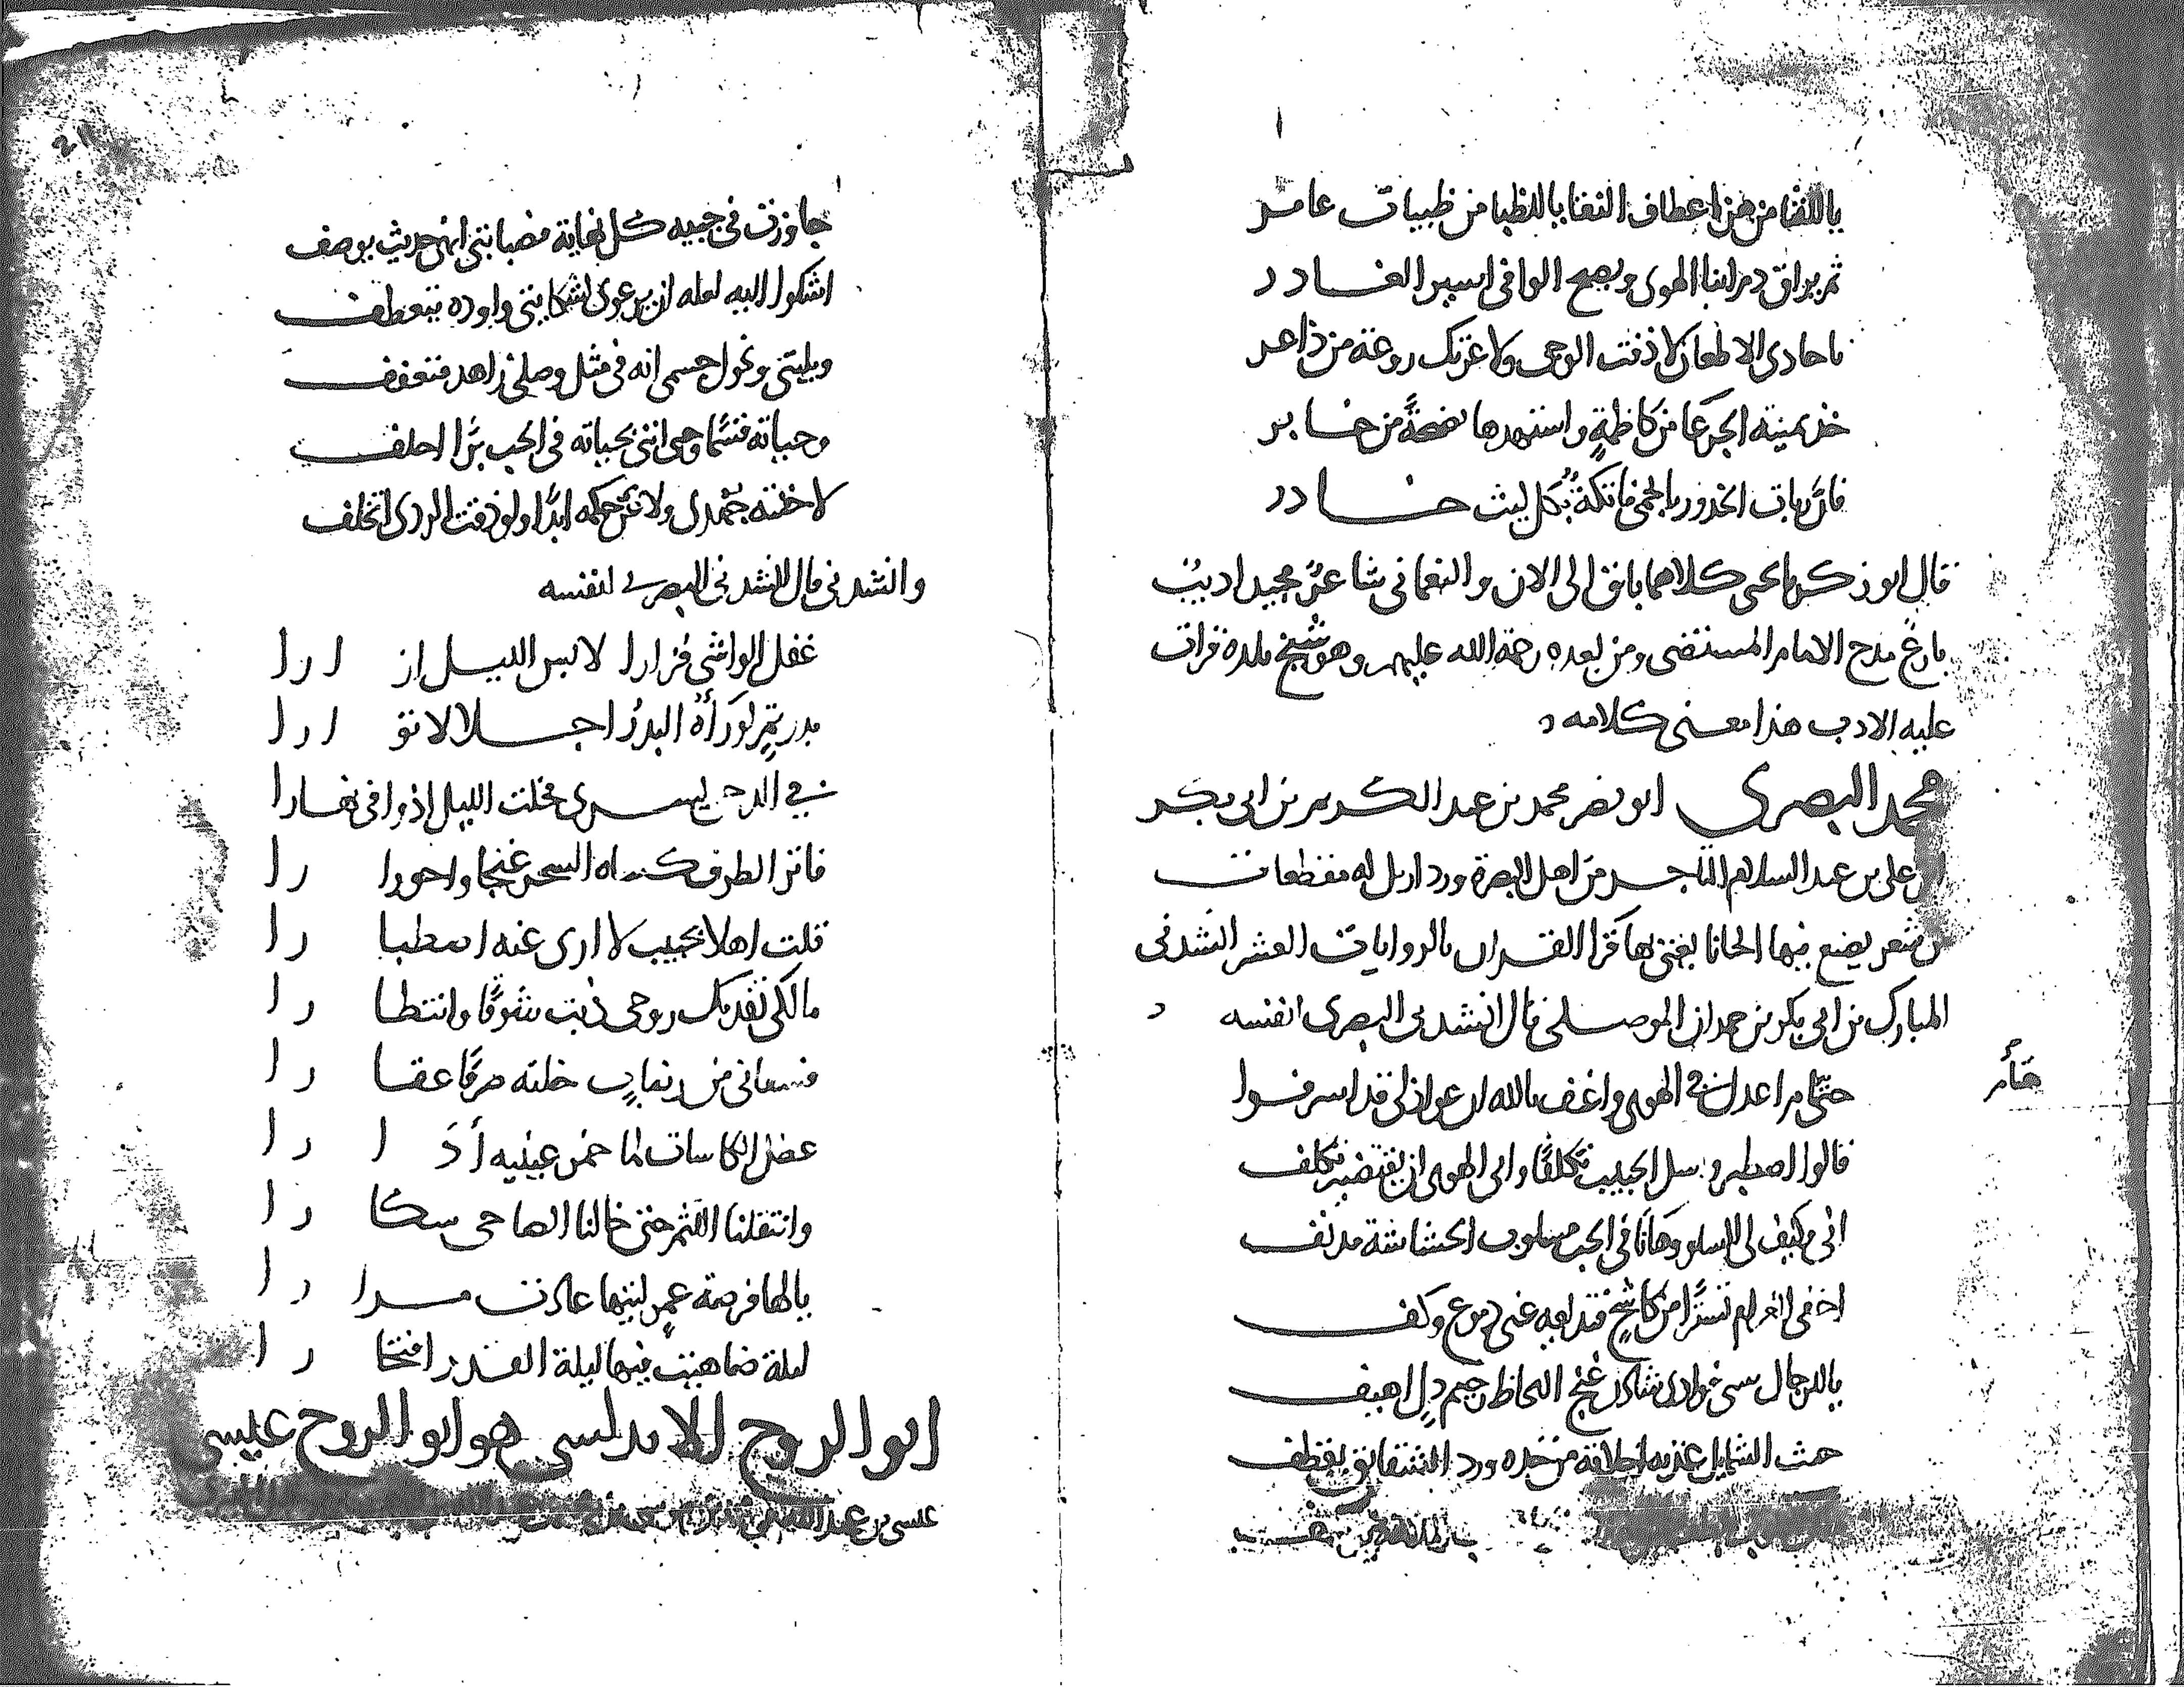 ياللقنا من هز اعطاف النقا ياللظبا من ظبيات عامر
ثم يراق دم ابنا الهوى ويصبح الوافى اسير الغادر
يا حادى الاظعان لا ذقت الوجى ولا عزتك روعة من ذاعر
خذ يمينه الجرعا من كاظمةٍ واستهدها نفحةً من حابر
فان ربات الخدور بالحمى فاتكةٌ بكل ليث خادر
قال ابو زكريا يحيى كلاهما باق الى الان والنعمانى شاعرٌ مجيد اديبٌ
بارع مدح الامام المستضى ومن بعده رحمة الله عليهم وهو شيخ بلده قرات
عليه الادب هذا معنى كلامه
محمد البصرى ابو نصر محمد بن عبد الكريم بن ابى بكر
بن على بن عبد السلام التاجر من اهل البصرة ورد اربل له مقطعات
من شعر يضع فيها الحانا يغنى بها قرا القران بالروايات العشر انشدنى
المبارك بن ابى بكر بن حمدان الموصلى قال انشدنى البصرى لنفسه
حتّام اعذل فى الهوى واعنف بالله ان عواذلى قد اسرفوا
قالوا اصطبر وسل الحبيب تكلفًا وابى الهوى ان يقتضيه تكلف
انى وكيف لى السلو وهانا فى الحب مسلوب الحشاشة مدنف
اخفى الغرام تسترًا من كاشحٍ فتذيعه عنى دموع وكف
ياللرجال سبى فوادى شادن غنج اللحاظ رخيم دلٍ اهيف
هش الشمايل عذبه اخلاقه من خده ورد الشقائق يقطف
جاوزت فى حبيه كل نهاية فصبابتى انهى حديث يوصف
اشكوا اليه لعله ان يرعوى لشكايتى واوده يتعطف
وبليتى ونحول جسمى انه فى مثل وصلى زاهد متعفف
وحياته قسمًا وحى اننى بحياته فى الحب برًا احلف
لا خنته جهدى ولا عن حكمه ابدًا ولو ذقت الردى اتخلف
وانشدنى قال انشدنى البصرى لنفسه
غفل الواشى فزارا لابس الليل ازارا
بدر تمٍ لو رآه البدرُ اجلالا توارا
فى الدجى يسرى فخلت الليل اذ وافى نهارا
فاتر الطرف كساه السحر غنجا واحورارا
قلت اهلا بحبيب لا ارى عنه اصطبارا
مالكى تفديك روحى ذبت شوقًا وانتظارا
فسقانى من رضابٍ خلته صرفًا عقارا
عضل الكاسات لما خمر عينيه أدارا
وانتقلنا اللثم حتى خالنا الصاحى سكارا
يالها فرصة عمرٍ ليتها عادت مرارا
ليلة ضاهيت فيها ليلة القدر افتخارا
ابو الروح الاندلسى هو ابو الروح عيسى
عيسى بن عبد الله